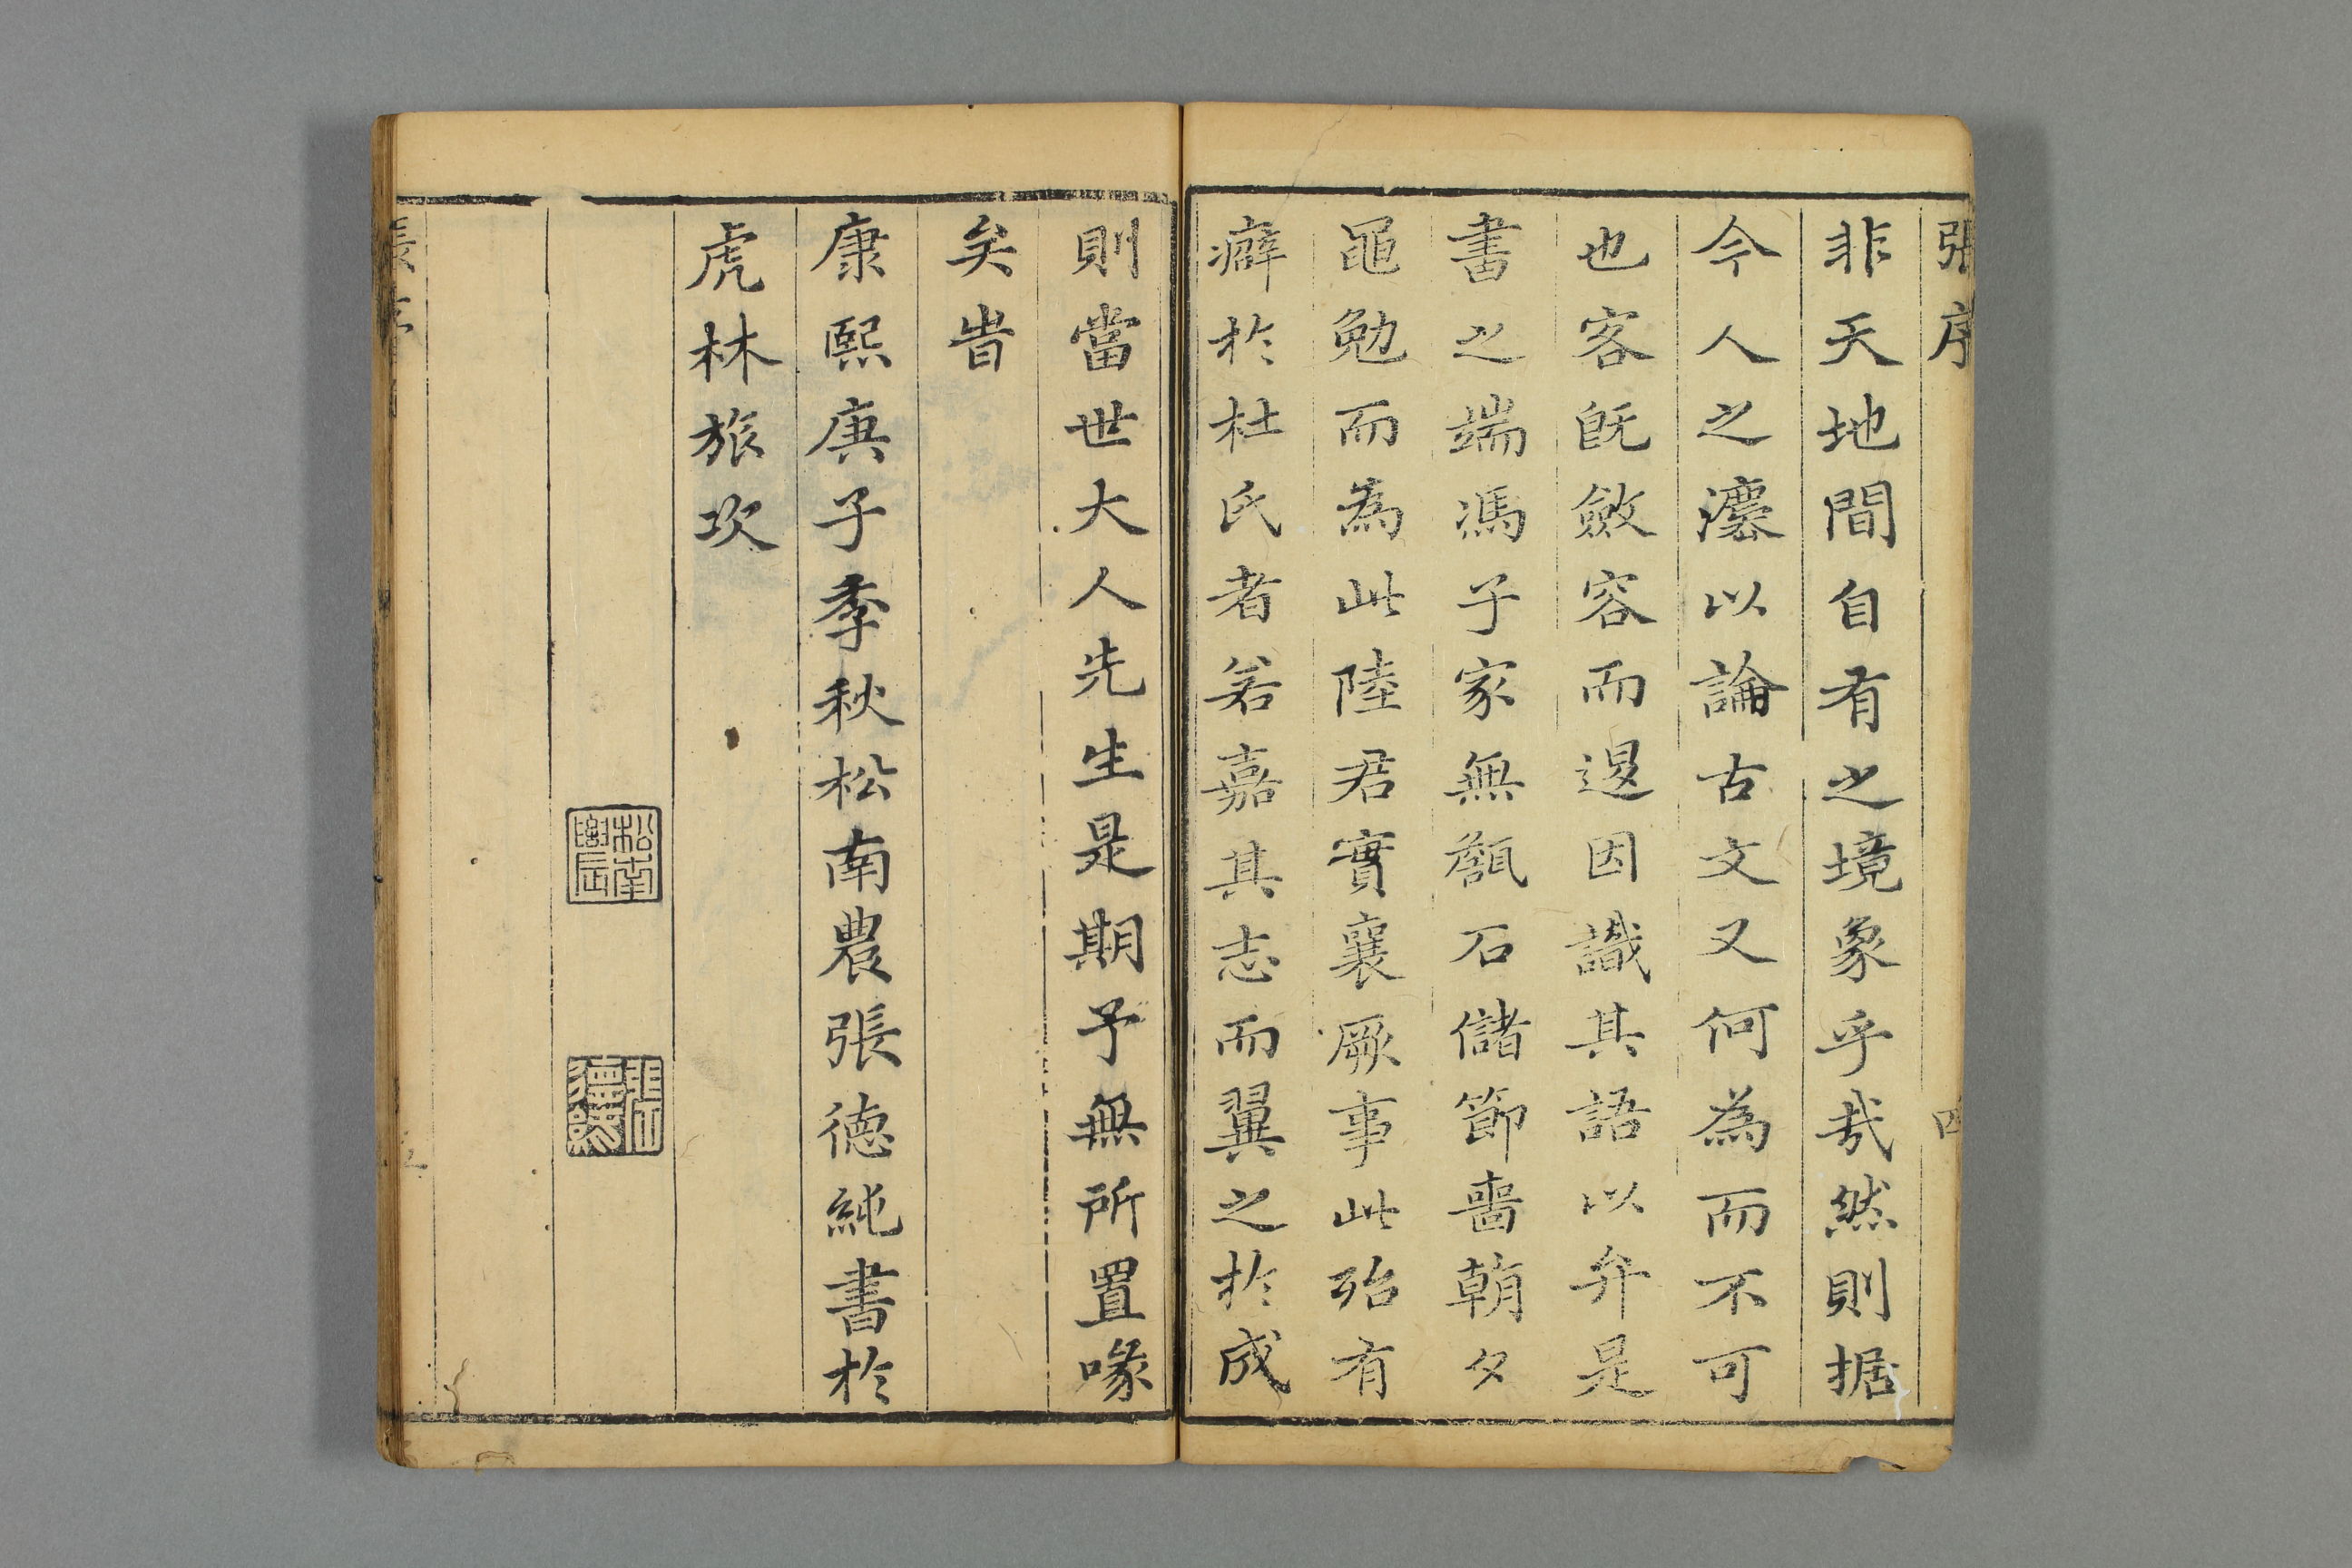 張序
非天地間自有之境象乎哉然則据
今人之灋以論古文又何為而不可
也客旣斂容而退因識其語以弁是
書之端馮子家無甔石儲節嗇朝夕
黽勉而為此陸君實襄厥事此殆有
癖於杜氏者若嘉其志而翼之於成
四
則當世大人先生是期予無所置喙
矣旹
康熙庚子季秋松南農張德純書於
虎林旅次
松南
張序